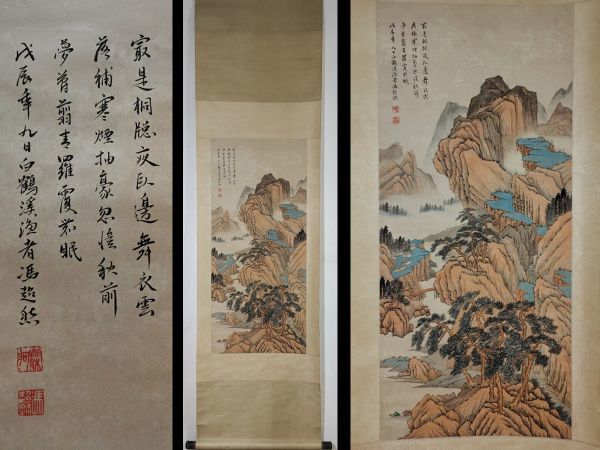 冣是桐牕夜臥邊舞衣雲
落補寒煙抽豪忽憶秋前
夢曾翦青羅覆君眠
戊辰年九日白鶴溪漁者馮超然